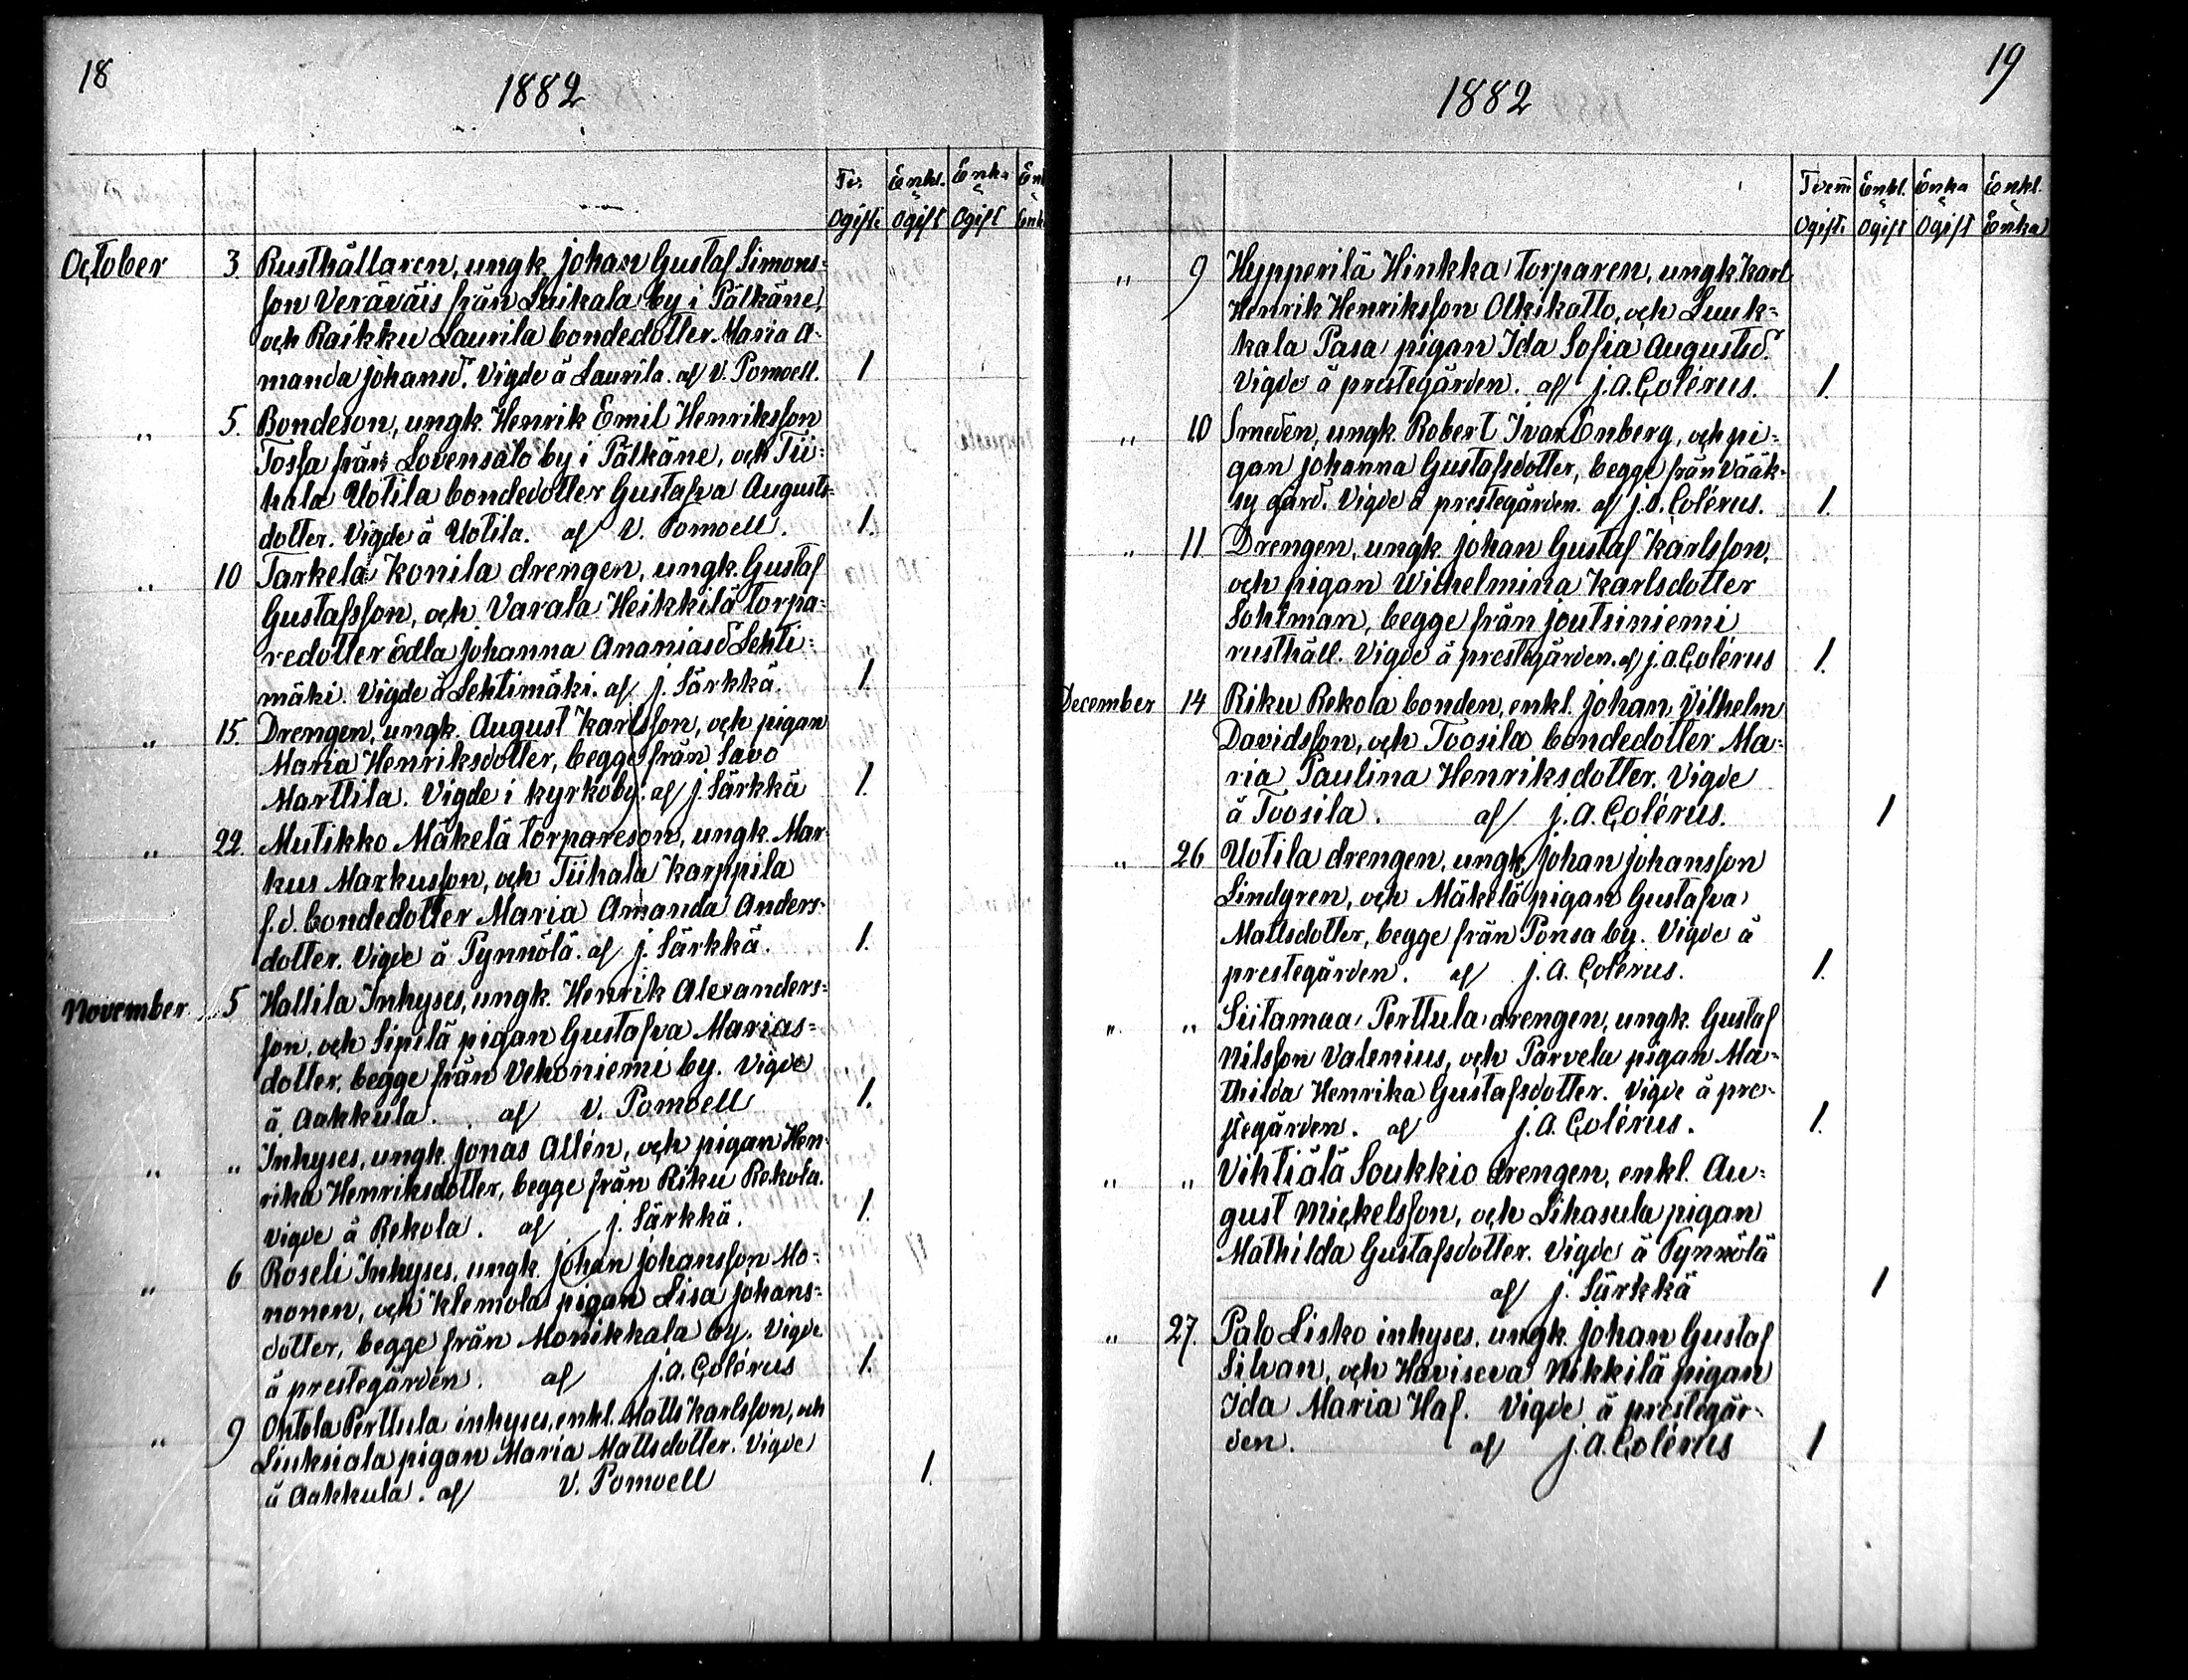 18
1882
Tv: Enkl. Enka Enk
Ogifte Ogift Ogift Enka
October 3. Rusthållaren, ungk. Johan Gustaf Simons=
son Veräväis från Laikala by i Pälkäne,
och Raikku Laurila bondedotter Maria A-
manda Johansd:r. Vigde å Laurila. af V. Pomoell. 1
" 5. Bondeson, ungk. Henrik Emil Henriksson
Tossa från Lovensalo by i Pälkäne, och Tii=
hala Uotila bondedotter Gustafva Augusts=
dotter. Vigde å Uotila. af V. Pomoell. 1.
" 10 Tarkela Konila drengen, ungk. Gustaf
Gustafsson, och Varala Heikkilä torpa=
redotter Edla Johanna Ananiasd:r Lehti=
mäki. Vigde å Lehtimäki. af J. Särkkä. 1.
" 15. Drengen, ungk. August Karlsson, och pigan
Maria Henriksdotter, begge från Savo
Marttila. Vigde i kyrkoby. af J. Särkkä 1.
" 22. Mutikko Mäkelä torpareson, ungk. Mar-
kus Markusson, och Tiihala Karppila
f.d. bondedotter Maria Amanda Anders-
dotter. Vigde å Pynnölä. af J. Särkkä. 1.
November 5 Hallila Inhyses, ungk. Henrik Alexanders=
son, och Sipilä pigan Gustafva Marias=
dotter, begge från Vehoniemi by. Vigde
å Aakkula. af V. Pomoell 1.
" " Inhyses, ungk. Jonas Allén, och pigan Hen-
rika Henriksdotter, begge från Riku Rekola.
Vigde å Rekola. af J. Särkkä. 1.
" 6 Roseli Inhyses, ungk. Johan Johansson Mo=
nonen, och Klemola pigan Lisa Johans=
dotter, begge från Monikkala by. Vigde
å prestegården. af J.A. Colérus 1.
" 9 Ohtola Perttula inhyses, enkl. Matts Karlsson, och
Liuksiala pigan Maria Mattsdotter. Vigde
å Aakkula. af V. Pomoell 1.
19
1882
Tvenn Enkl. Enka Enkl.
Ogifte Ogift Ogift Enka
" 9 Hypperilä Hinkka torparen, ungk. Karl
Henrik Henriksson Alkikatto, och Luuk=
kala Pasa pigan Ida Sofia Augustsd:r
Vigde å prestegården. af J.A. Colérus. 1.
" 10 Smeden, ungk. Robert Ivar Enberg, och pi=
gan Johanna Gustafsdotter, begge från Vääk=
sy gård. Vigde å prestegården. af J.A. Colérus. 1.
" 11 Drengen, ungk. Johan Gustaf Karlsson,
och pigan Wilhelmina Karlsdotter
Sohlman, begge från Joutsiniemi
rusthåll. Vigde å prestegården. af J.A. Colérus 1.
December 14 Riku Rekola bonden, enkl. Johan Vilhelm
Davidsson, och Toosila bondedotter Ma=
ria Paulina Henriksdotter. Vigde
å Toosila. af J.A. Colérus. 1
" 26 Uotila drengen, ungk. Johan Johansson
Lindgren, och Mäkelä pigan Gustafva
Mattsdotter, begge från Ponsa by. Vigde å
prestegården. af J.A. Colérus. 1.
" " Siitamaa Perttula drengen, ungk. Gustaf
Nilsson Valenius, och Parvela pigan Ma-
thilda Henrika Gustafsdotter. Vigde å pre-
stegården. af J.A. Colérus. 1.
" " Vihtiälä Soukkio drengen, enkl. Au=
gust Mickelsson, och Lihasula pigan
Mathilda Gustafsdotter. Vigde å Pynnölä
af J. Särkkä 1
" 27. Palo Lisko inhyses, ungk. Johan Gustaf
Silvan, och Haviseva Nikkilä pigan
Ida Maria Haf. Vigde å prestegår-
den. af J.A. Colérus 1